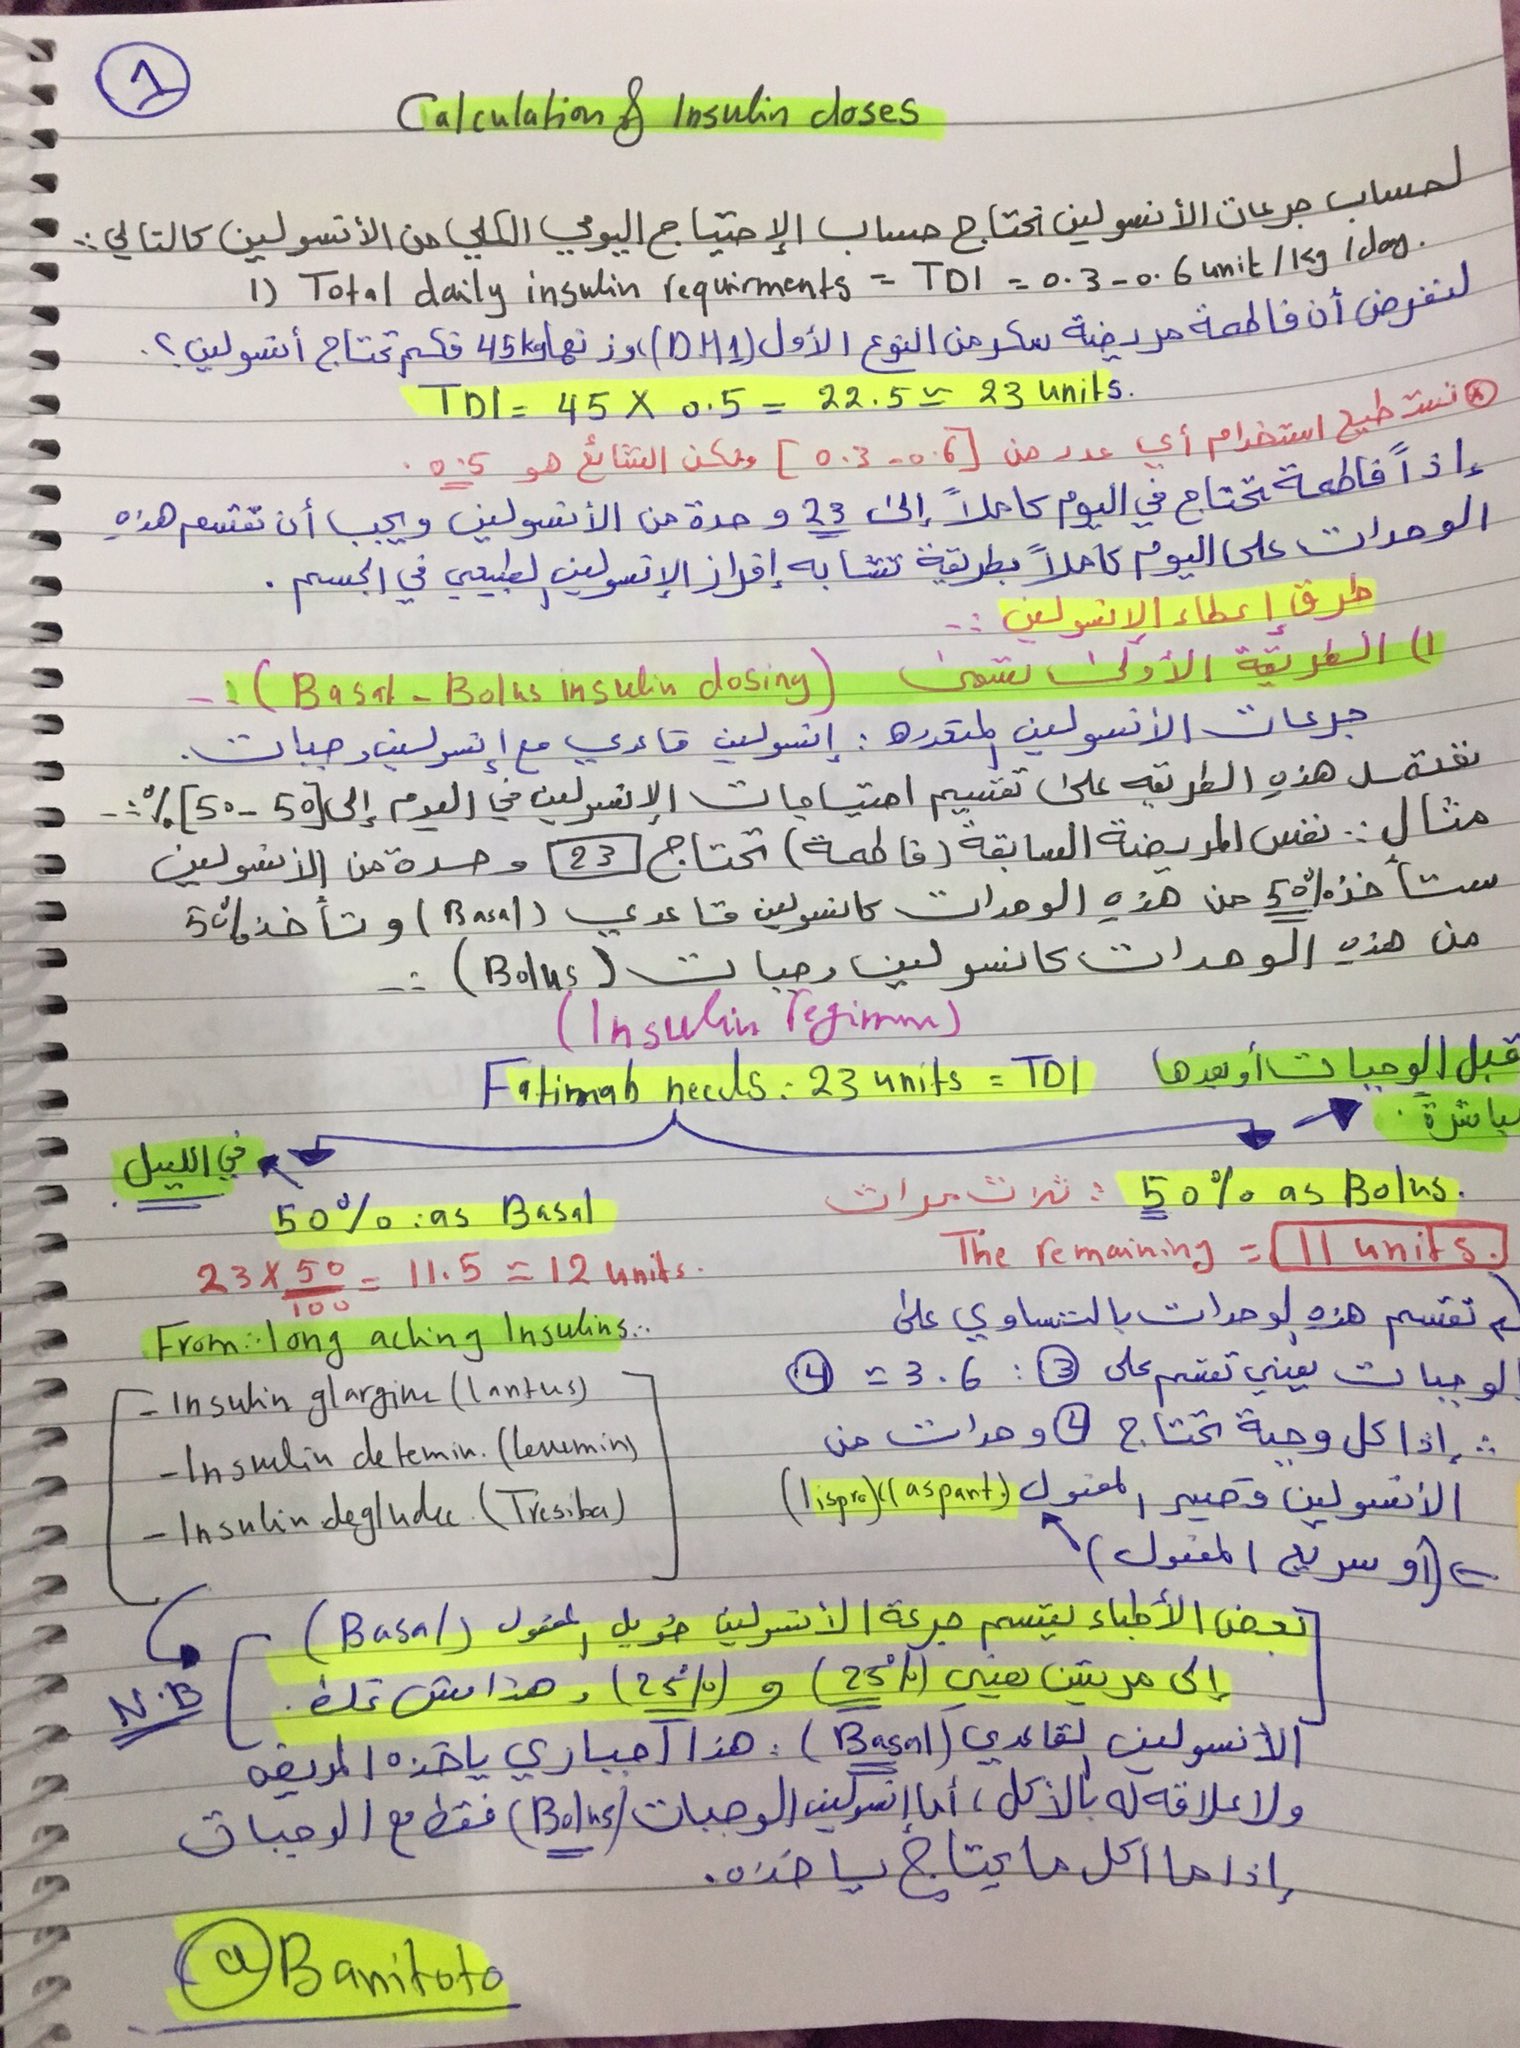 1
Calculation of Insulin doses
لحساب جرعات الأنسولين نحتاج حساب الإحتياج اليومي الكلي من الأنسولين كالتالي :-
1) Total daily insulin requirments = TDI = 0.3-0.6 unit/kg/day.
لنفرض أن فاطمة مريضة سكر من النوع الأول (DM1)، وزنها 45kg فكم تحتاج أنسولين؟.
TDI = 45 X 0.5 = 22.5 ≃ 23 units.
* نستطيع استخدام أي عدد من [0.3-0.6] ولكن الشائع هو 0.5.
إذاً فاطمة تحتاج في اليوم كاملاً إلى 23 وحدة من الأنسولين ويجب أن تقسم هذه
الوحدات على اليوم كاملاً بطريقة تشابه إفراز الإنسولين الطبيعي في الجسم.
طرق إعطاء الإنسولين :-
1) الطريقة الأولى تسمى (Basal-Bolus insulin dosing) :-
جرعات الأنسولين المتعدده : إنسولين قاعدي مع إنسولين وجبات.
تعتمد هذه الطريقه على تقسيم احتياجات الإنسولين في اليوم إلى [50-50]% :-
مثال :- نفس المريضة السابقة (فاطمة) تحتاج 23 وحدة من الأنسولين
ستأخذ 50% من هذه الوحدات كانسولين قاعدي (Basal) وتأخذ 50%
من هذه الوحدات كانسولين وجبات (Bolus) :-
(Insulin regimm)
Fatimah needs : 23 units = TDI
قبل الوجبات أو بعدها
مباشرة.
في الليل
50% : as Basal
50% as Bolus. : ثلاث مرات
23 x 50/100 = 11.5 ≃ 12 units.
The remaining = 11 units.
From :- long acting Insulins :-
تقسم هذه الوحدات بالتساوي على
- Insulin glargine (Lantus)
الوجبات يعني تقسم على 3 : 3.6 ≃ 4
- Insulin detemin. (Levemin)
∴ إذا كل وجبة تحتاج 4 وحدات من
- Insulin degludec. (Tresiba)
الأنسولين قصير المفعول (aspart.) (lispro)
(أو سريع المفعول)
N.B
بعض الأطباء يقسم جرعة الأنسولين طويل المفعول (Basal)
إلى مرتين يعني (25%) و (25%) وهذا مش غلط.
الأنسولين القاعدي (Basal) : هذا اجباري ياخذه المريض
ولا علاقه له بالأكل، أما إنسولين الوجبات (Bolus) فقط مع الوجبات
إذا ما اكل ما يحتاج ياخذه.
@Banitoto